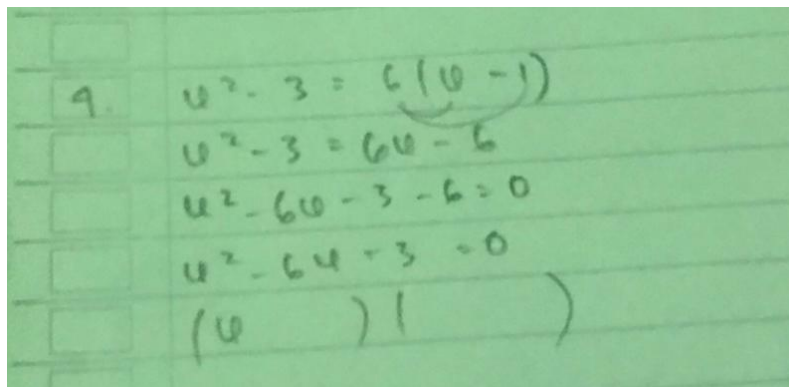 9. u² - 3 = 6(u - 1)
u² - 3 = 6u - 6
u² - 6u - 3 - 6 = 0
u² - 6u - 3 = 0
(u ) ( )